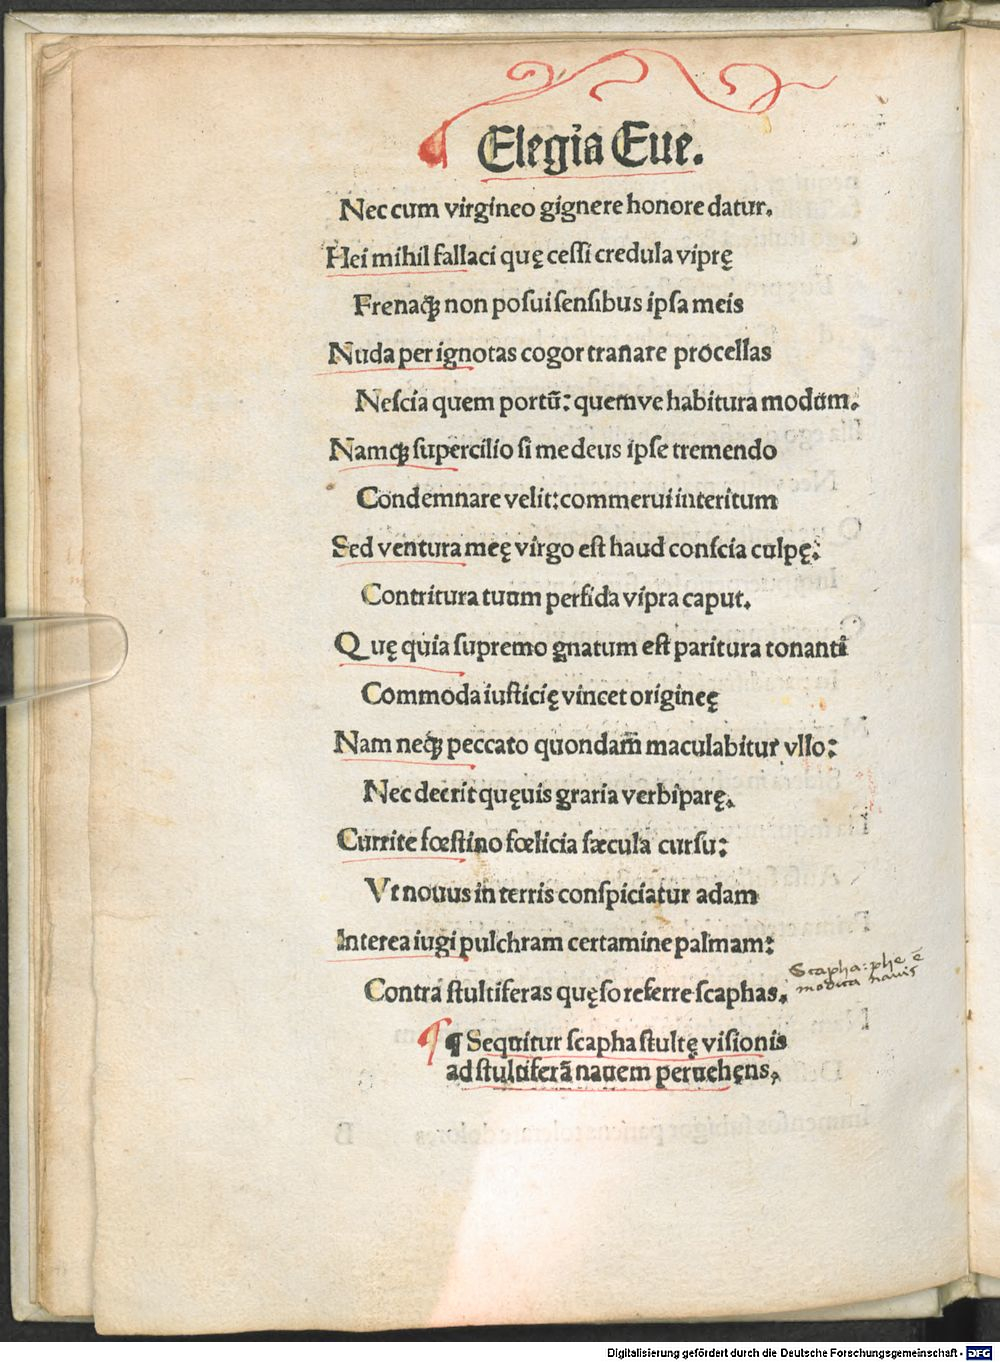 Elegia Eue.
Nec cum virgineo gignere honore datur.
Hei mihil fallaci quę cessi credula viprę
Frenaqꝫ non posui sensibus ipsa meis
Nuda per ignotas cogor tranare procellas
Nescia quem portū: quemve habitura modum.
Namqꝫ supercilio si me deus ipse tremendo
Condemnare velit: commerui interitum
Sed ventura meę virgo est haud conscia culpę:
Contritura tuum perfida vipra caput.
Quę quia supremo gnatum est paritura tonanti
Commoda iusticię vincet origineę
Nam neqꝫ peccato quondam maculabitur vllo:
Nec deerit quęuis graria verbiparę.
Currite fœstino fœlicia sæcula cursu:
Vt nouus in terris conspiciatur adam
Interea iugi pulchram certamine palmam:
Contra stultiferas quęso referre scaphas.
Scapha: phe ē
modica nauis
¶ Sequitur scapha stultę visionis
ad stultiferā nauem peruehęns.
Digitalisierung gefördert durch die Deutsche Forschungsgemeinschaft - DFG